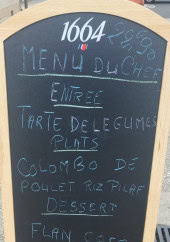 1664 28,90
MENU DU CHEF
ENTREE
TARTE DE LEGUMES
PLATS
COLOMBO DE
POULET RIZ PILAF
DESSERT
FLAN COCO